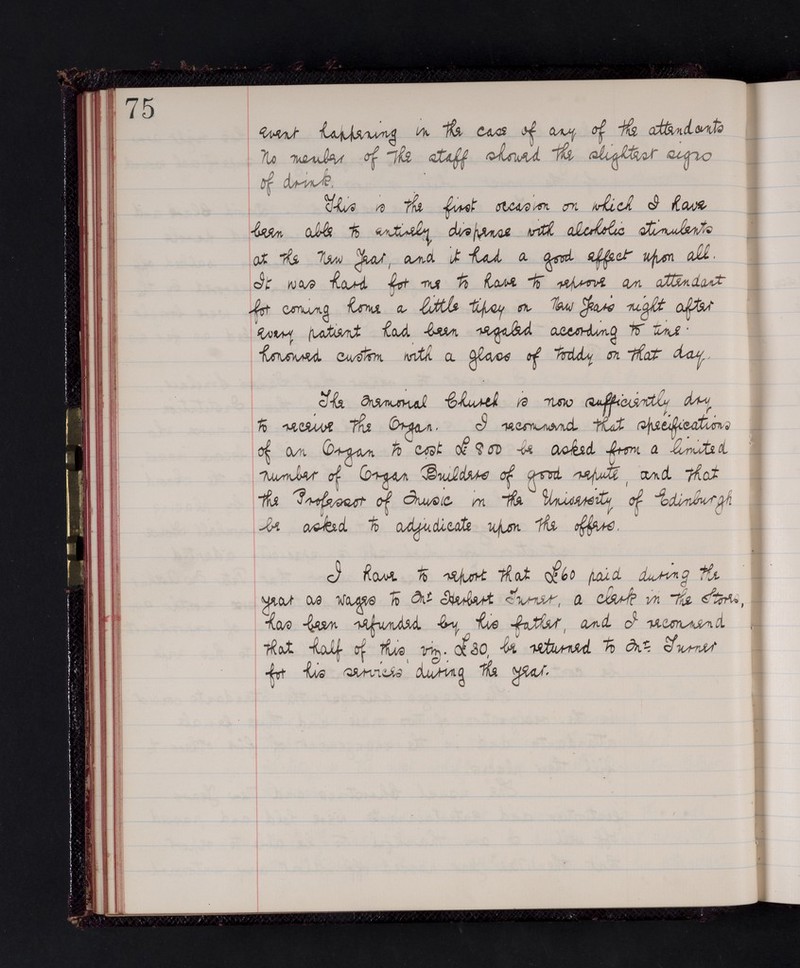 75
event happening in the case of any of the attendants
No member of the staff showed the slightest signs
of drink.
This is the first occasion on which I have
been able to entirely dispense with alcoholic stimulents
at the New Year, and it had a good effect upon all.
It was hard for me to have to reprove an attendant
for coming home a little tipsy on New Years night after
every patient had been regaled according to time-
honoured custom with a glass of toddy on that day.
The Memorial Church is now sufficiently dry
to receive the Organ. I recommend that specifications
of an Organ to cost £800 be asked from a limited
number of Organ Builders of good repute, and that
the Professor of Music in the University of Edinburgh
be asked to adjudicate upon the offers.
I have to report that £60 paid during the
year as wages to Mr Herbert Turner, a clerk in the Stores,
has been refunded by his father, and I recommend
that half of this viz. £30, be returned to Mr. Turner
for his services during the year.